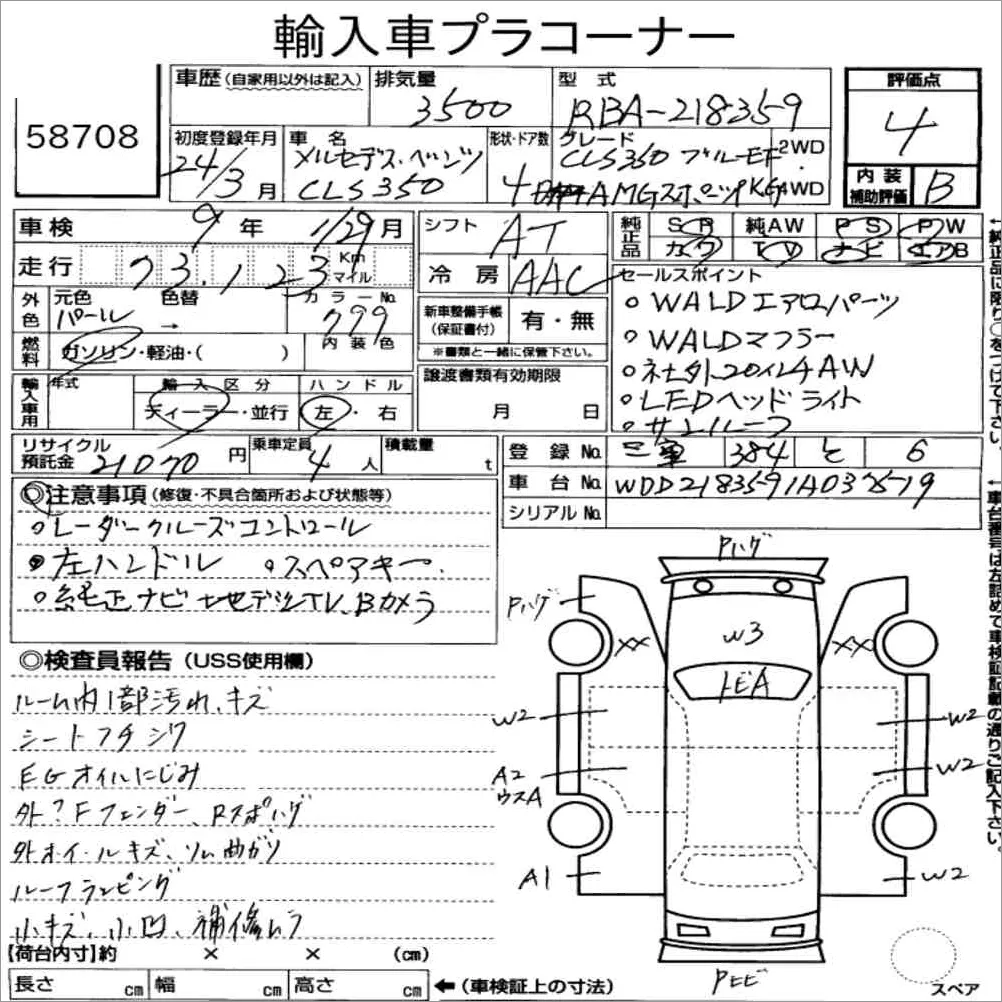 輸入車プラコーナー
58708
車歴 (自家用以外は記入)
排気量 3500
型式 RBA-218359
評価点 4
初度登録年月 24/3月
車名 メルセデス・ベンツ CLS350
形状・ドア数 4
グレード CLS350 ブルーEF AMGスポーツPKG
2WD
4WD
内装補助評価 B
車検 9年 1/29月
シフト AT
純正品 SR 純AW PS PW
カワ TV ナビ エアB
走行 73,123 Km マイル
冷房 AAC
セールスポイント
○WALDエアロパーツ
○WALDマフラー
○社外20インチAW
○LEDヘッドライト
○サンルーフ
外色 元色 パール → 色替
カラーNo. 799
内装色
新車整備手帳 (保証書付) 有・無
※書類と一緒に保管下さい。
燃料 ガソリン・軽油・( )
輸入車用 年式
輸入区分 ディーラー・並行
ハンドル 左・右
譲渡書類有効期限 月 日
リサイクル預託金 21070円
乗車定員 4人
積載量 t
登録No. 三重 384 と 6
車台No.
シリアルNo.
◎注意事項 (修復・不具合箇所および状態等)
○レーダークルーズコントロール
○左ハンドル ○スペアキー
○純正ナビ 地デジTV、Bカメラ
◎検査員報告 (USS使用欄)
ルーム内1部汚れ、キズ
シートフチシワ
EGオイルにじみ
外?Fフェンダー、Rスポハゲ
外ホイールキズ、リム曲ガリ
ルーフランピング
小キズ、小凹、補修ムラ
【荷台内寸】約 × × (cm)
長さ cm 幅 cm 高さ cm ←(車検証上の寸法)
Pハゲ
Pハゲ
XX
XX
W3
トビA
W2
W2
A2
ウスA
W2
A1
W2
スペア
←純正品に限り○をつけて下さい。
←車台番号は左詰めで車検証記載の通りご記入下さい。